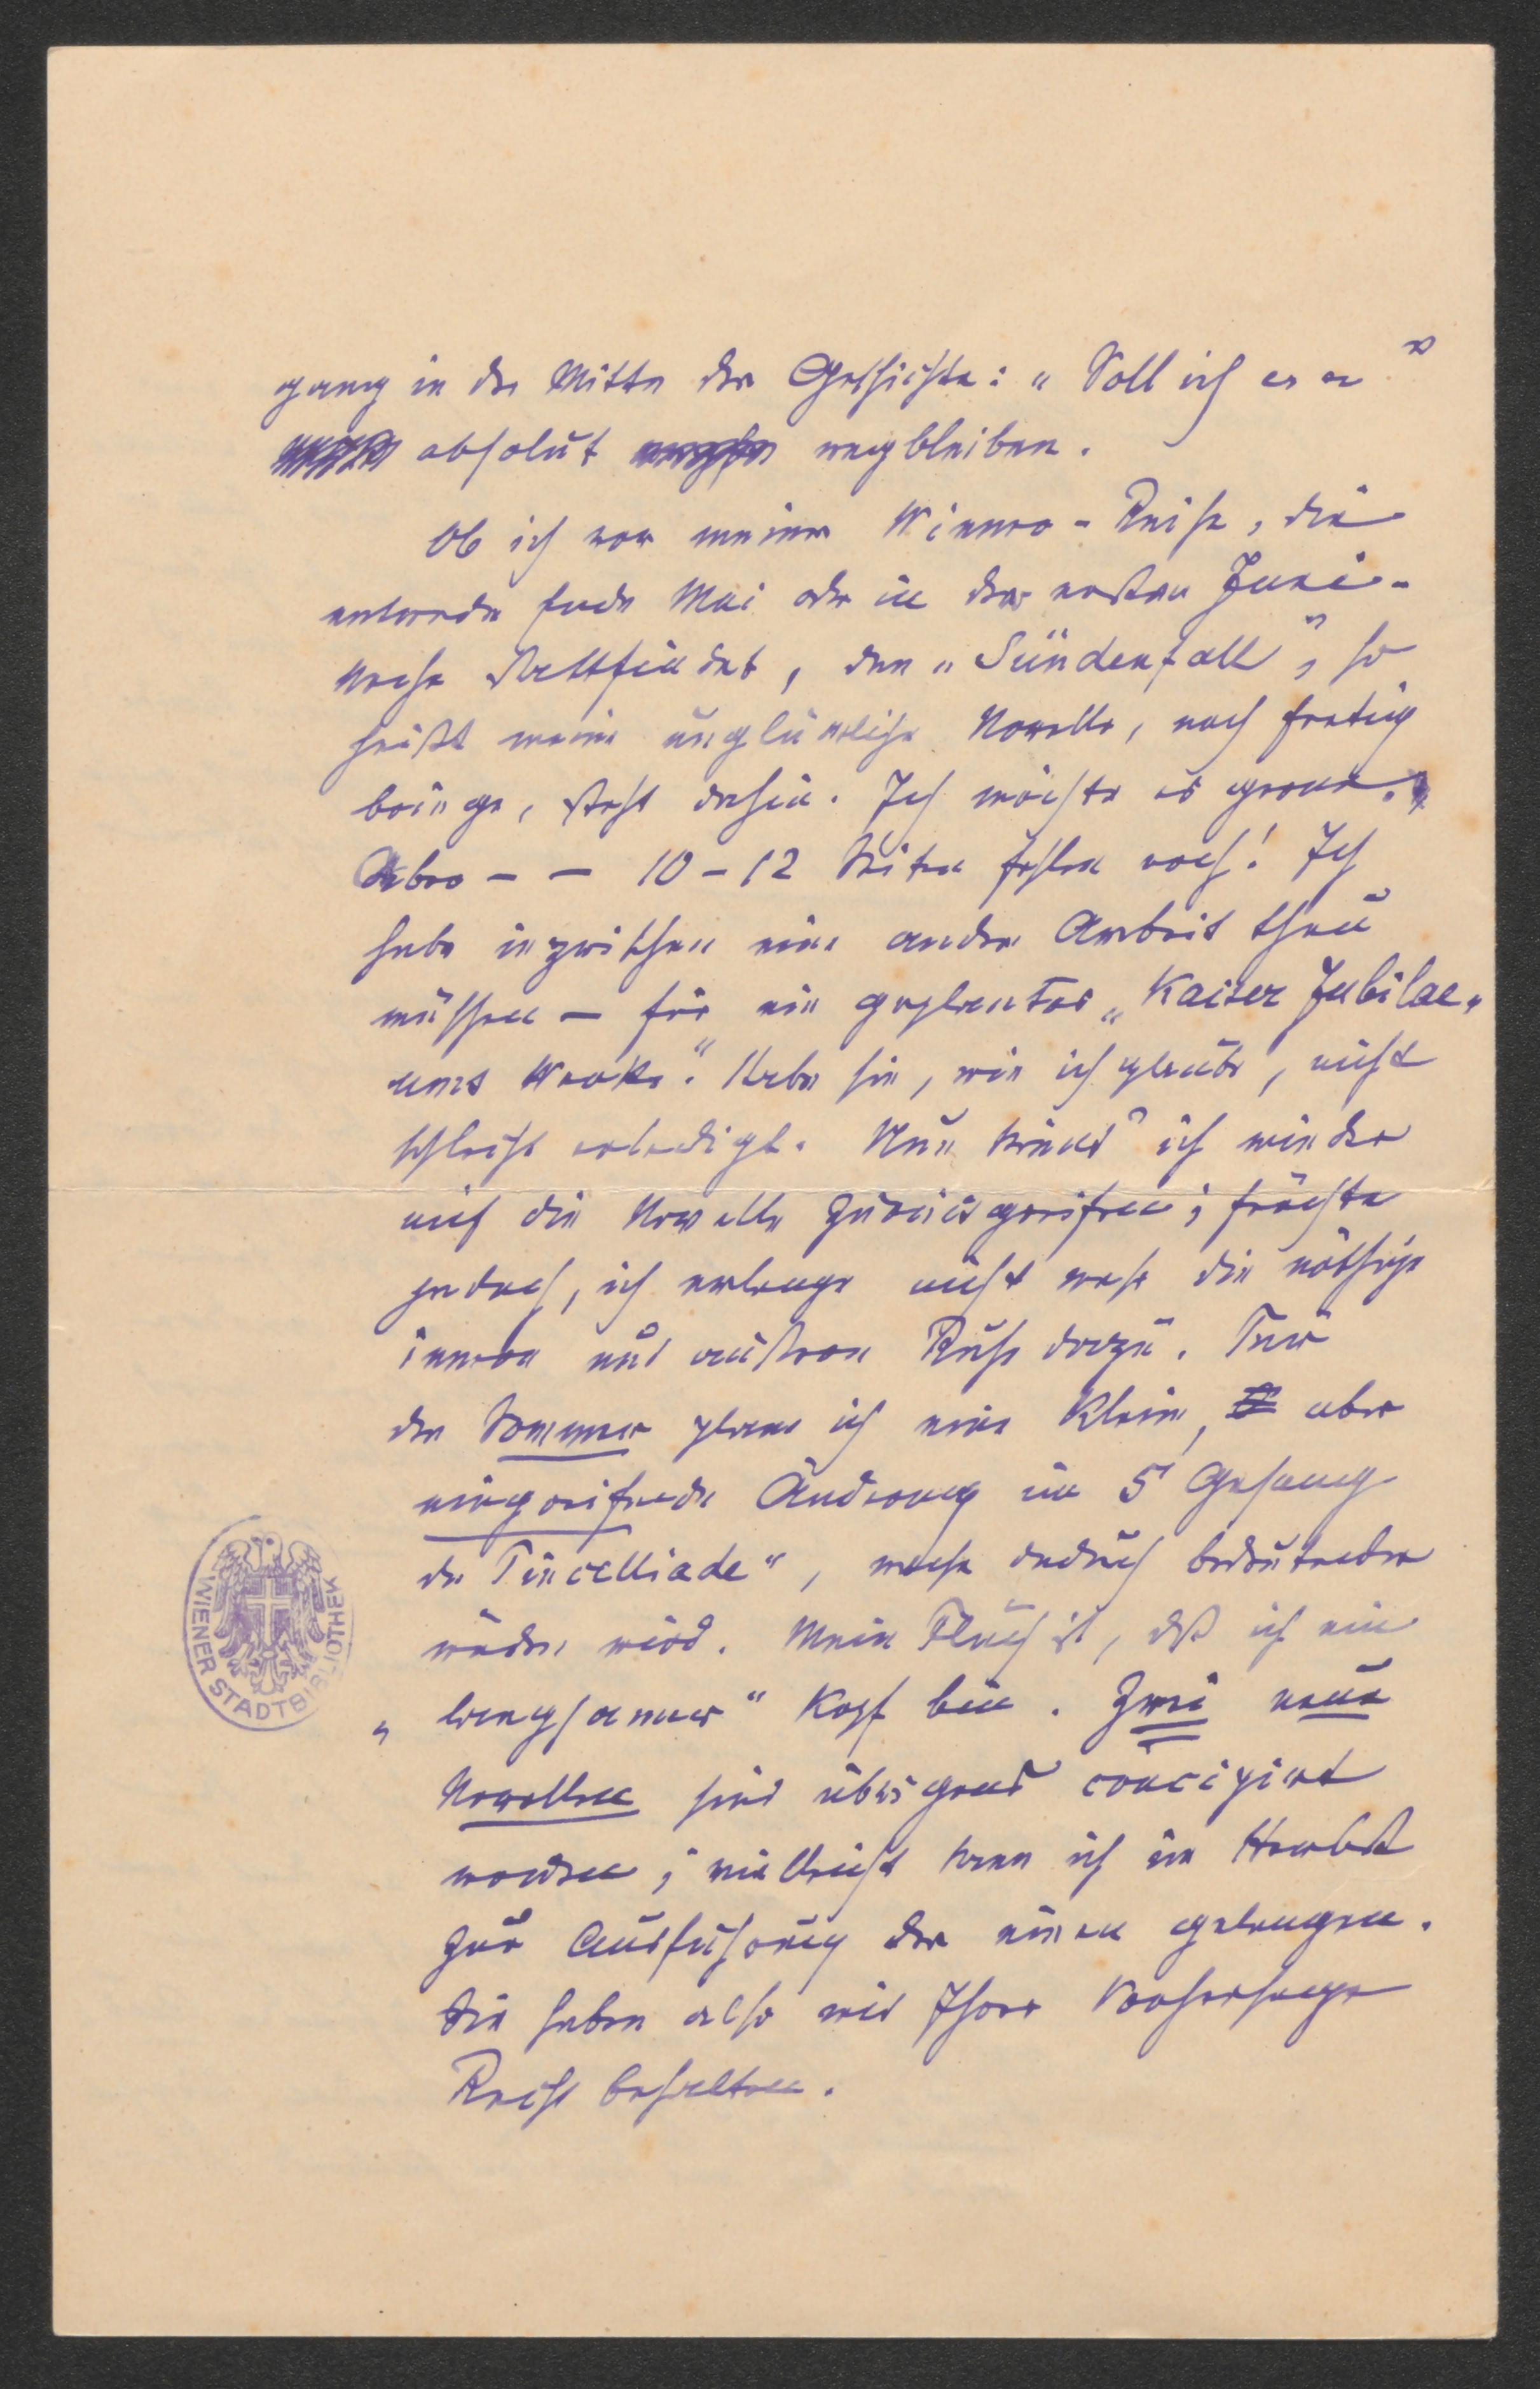 gang in der Mitte der Geschichte: „Soll ich es er"
absolut wegbleiben.
Ob ich vor meiner Wiener-Reise, die
entweder Ende Mai oder in der ersten Juni-
woche stattfindet, den „Sündenfall", so
heißt meine unglückliche Novelle, noch fertig
bringe, steht dahin. Ich möchte es gerne.
Aber - - 10-12 Seiten fehlen noch! Ich
habe inzwischen eine andre Arbeit thun
müssen - für ein geplantes „Kaiser Jubilae-
ums Werk". Habe sie, wie ich glaube, nicht
schlecht erledigt. Nun könnt' ich wieder
auf die Novelle zurückgreifen; fürchte
jedoch, ich erlange nicht mehr die nöthige
innere und äußere Ruhe dazu. Für
den Sommer plane ich eine kleine, aber
eingreifende Änderung im 5 Gesang
der Pincelliade", welche dadurch bedeutender
werden wird. Mein Fluch ist, daß ich ein
„langsamer" Kopf bin. Zwei neue
Novellen sind übrigens concipirt
worden; vielleicht kann ich im Herbst
zur Ausführung der einen gelangen.
Sie haben also mit Ihrer Vorhersage
Recht behalten.
WIENER STADTBIBLIOTHEK